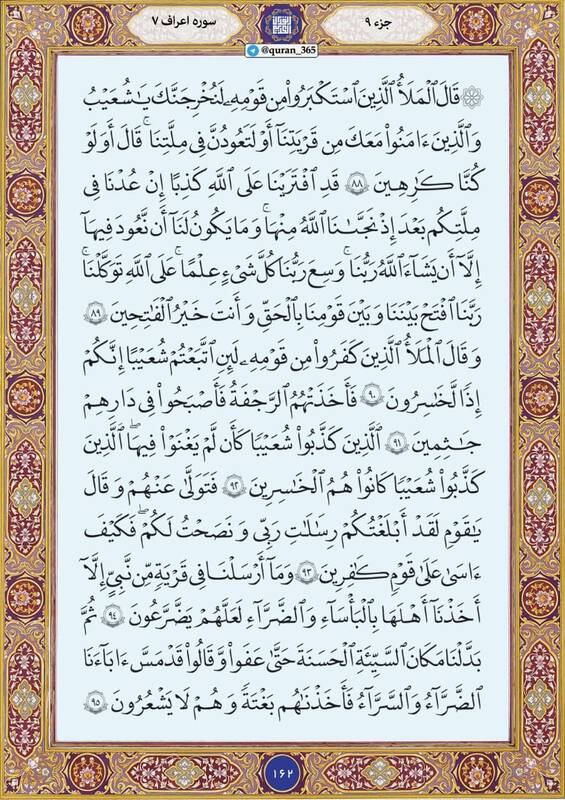 جزء ۹
سوره اعراف ۷
@quran_365
۞ قَالَ ٱلْمَلَأُ ٱلَّذِينَ ٱسْتَكْبَرُوا۟ مِن قَوْمِهِۦ لَنُخْرِجَنَّكَ يَـٰشُعَيْبُ
وَٱلَّذِينَ ءَامَنُوا۟ مَعَكَ مِن قَرْيَتِنَآ أَوْ لَتَعُودُنَّ فِى مِلَّتِنَا ۚ قَالَ أَوَلَوْ
كُنَّا كَـٰرِهِينَ ۸۸ قَدِ ٱفْتَرَيْنَا عَلَى ٱللَّهِ كَذِبًا إِنْ عُدْنَا فِى
مِلَّتِكُم بَعْدَ إِذْ نَجَّىٰنَا ٱللَّهُ مِنْهَا ۚ وَمَا يَكُونُ لَنَآ أَن نَّعُودَ فِيهَآ
إِلَّآ أَن يَشَآءَ ٱللَّهُ رَبُّنَا ۚ وَسِعَ رَبُّنَا كُلَّ شَىْءٍ عِلْمًا ۚ عَلَى ٱللَّهِ تَوَكَّلْنَا ۚ
رَبَّنَا ٱفْتَحْ بَيْنَنَا وَبَيْنَ قَوْمِنَا بِٱلْحَقِّ وَأَنتَ خَيْرُ ٱلْفَـٰتِحِينَ ۸۹
وَقَالَ ٱلْمَلَأُ ٱلَّذِينَ كَفَرُوا۟ مِن قَوْمِهِۦ لَئِنِ ٱتَّبَعْتُمْ شُعَيْبًا إِنَّكُمْ
إِذًا لَّخَـٰسِرُونَ ۹۰ فَأَخَذَتْهُمُ ٱلرَّجْفَةُ فَأَصْبَحُوا۟ فِى دَارِهِمْ
جَـٰثِمِينَ ۹۱ ٱلَّذِينَ كَذَّبُوا۟ شُعَيْبًا كَأَن لَّمْ يَغْنَوْا۟ فِيهَا ۚ ٱلَّذِينَ
كَذَّبُوا۟ شُعَيْبًا كَانُوا۟ هُمُ ٱلْخَـٰسِرِينَ ۹۲ فَتَوَلَّىٰ عَنْهُمْ وَقَالَ
يَـٰقَوْمِ لَقَدْ أَبْلَغْتُكُمْ رِسَـٰلَـٰتِ رَبِّى وَنَصَحْتُ لَكُمْ ۖ فَكَيْفَ
ءَاسَىٰ عَلَىٰ قَوْمٍ كَـٰفِرِينَ ۹۳ وَمَآ أَرْسَلْنَا فِى قَرْيَةٍ مِّن نَّبِىٍّ إِلَّآ
أَخَذْنَآ أَهْلَهَا بِٱلْبَأْسَآءِ وَٱلضَّرَّآءِ لَعَلَّهُمْ يَضَّرَّعُونَ ۹۴ ثُمَّ
بَدَّلْنَا مَكَانَ ٱلسَّيِّئَةِ ٱلْحَسَنَةَ حَتَّىٰ عَفَوا۟ وَّقَالُوا۟ قَدْ مَسَّ ءَابَآءَنَا
ٱلضَّرَّآءُ وَٱلسَّرَّآءُ فَأَخَذْنَـٰهُم بَغْتَةً وَهُمْ لَا يَشْعُرُونَ ۹۵
۱۶۲